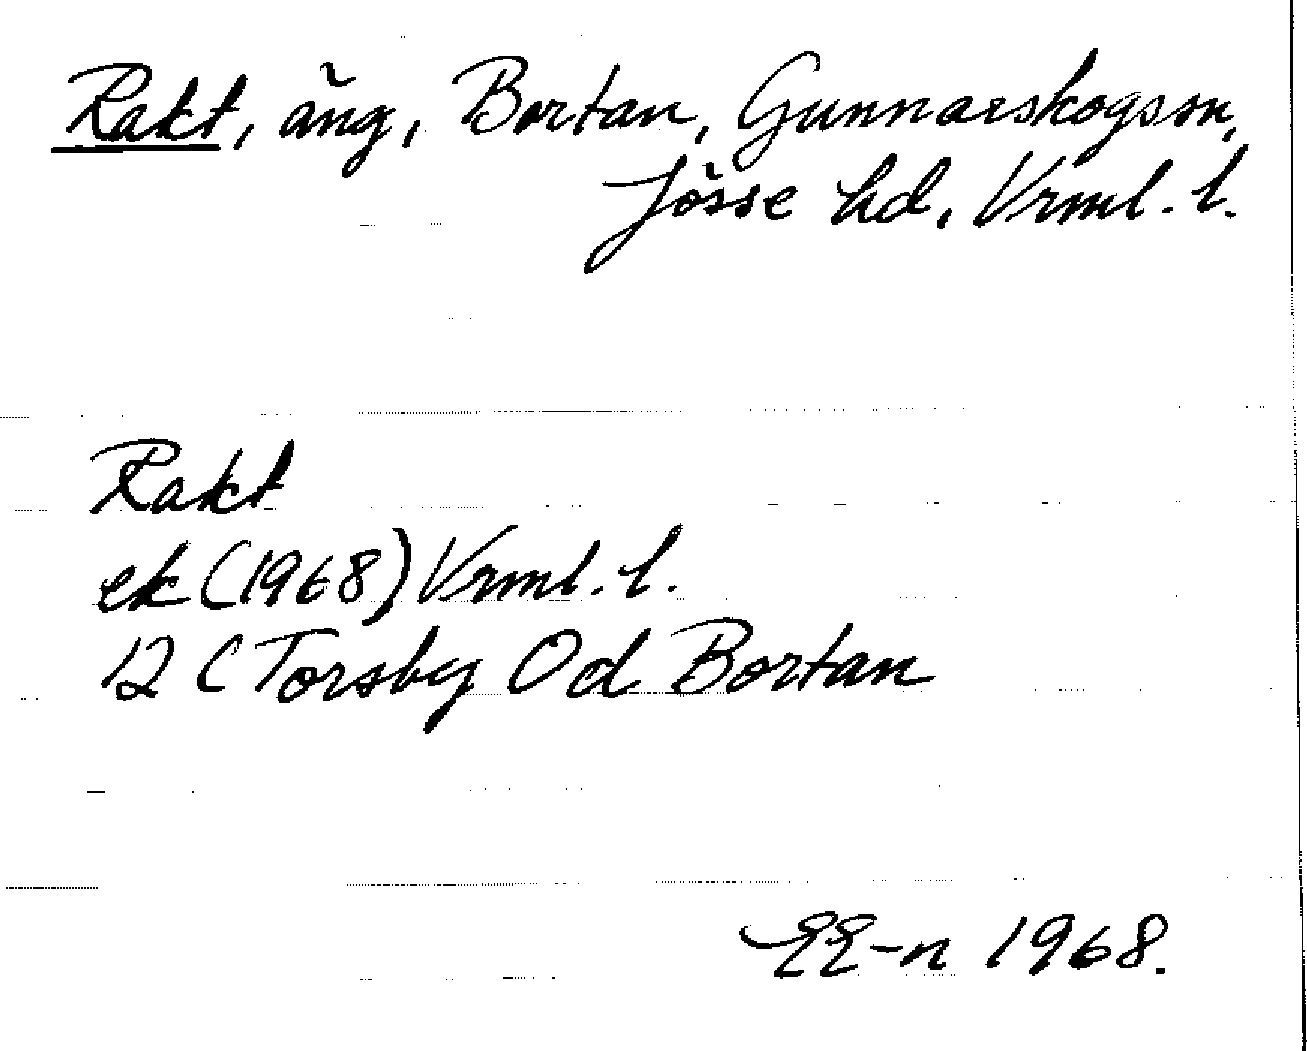 Rakt, äng, Bortan, Gunnarskogs sn,
Jösse hd, Vrml. l.
Rakt
ek (1968) Vrml. l.
12 C Torsby Od Bortan
EE-n 1968.